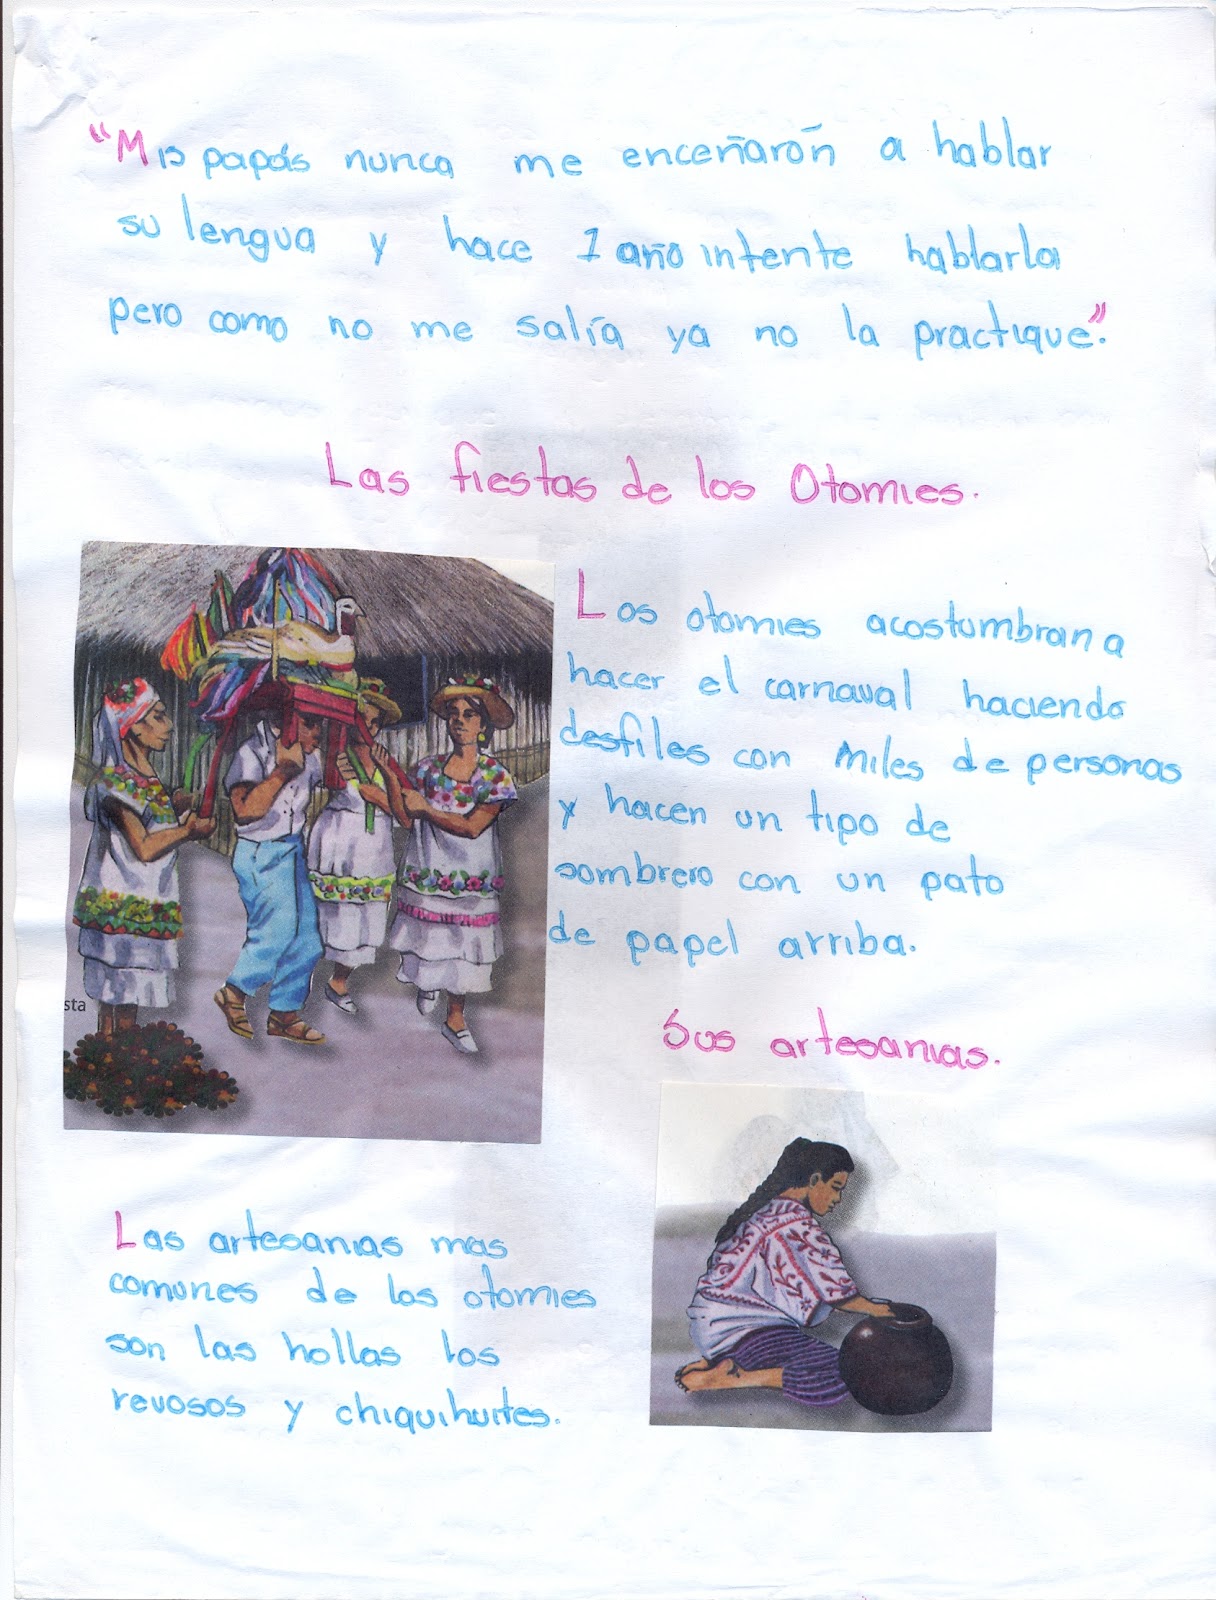 "Mis papás nunca me enceñarón a hablar
su lengua y hace 1 año intente hablarla
pero como no me salía ya no la practique".
Las fiestas de los Otomies.
Los otomies acostumbran a
hacer el carnaval haciendo
desfiles con miles de personas
y hacen un tipo de
sombrero con un pato
de papel arriba.
sta
Sus artesanias.
Las artesanias mas
comunes de los otomies
son las hollas los
revosos y chiquihuites.